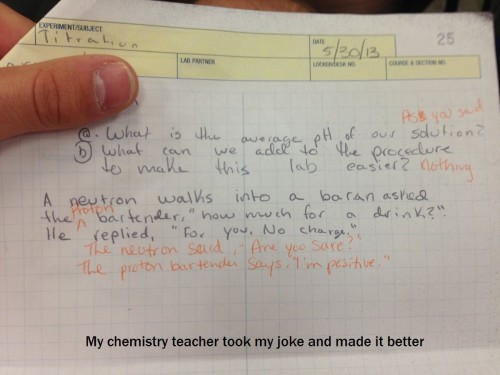 EXPERIMENT/SUBJECT
Titration
DATE
5/30/13
25
LAB PARTNER
LOCKER/DESK NO.
COURSE & SECTION NO.
As you said
a. What is the average pH of our solution?
b What can we add to the procedure
to make this lab easier? Nothing
A neutron walks into a bar an asked
the proton bartender, "how much for a drink?"
He replied, "For you, No charge."
The neutron said, "Are you sure?"
The proton bartender says, "I'm positive."
My chemistry teacher took my joke and made it better